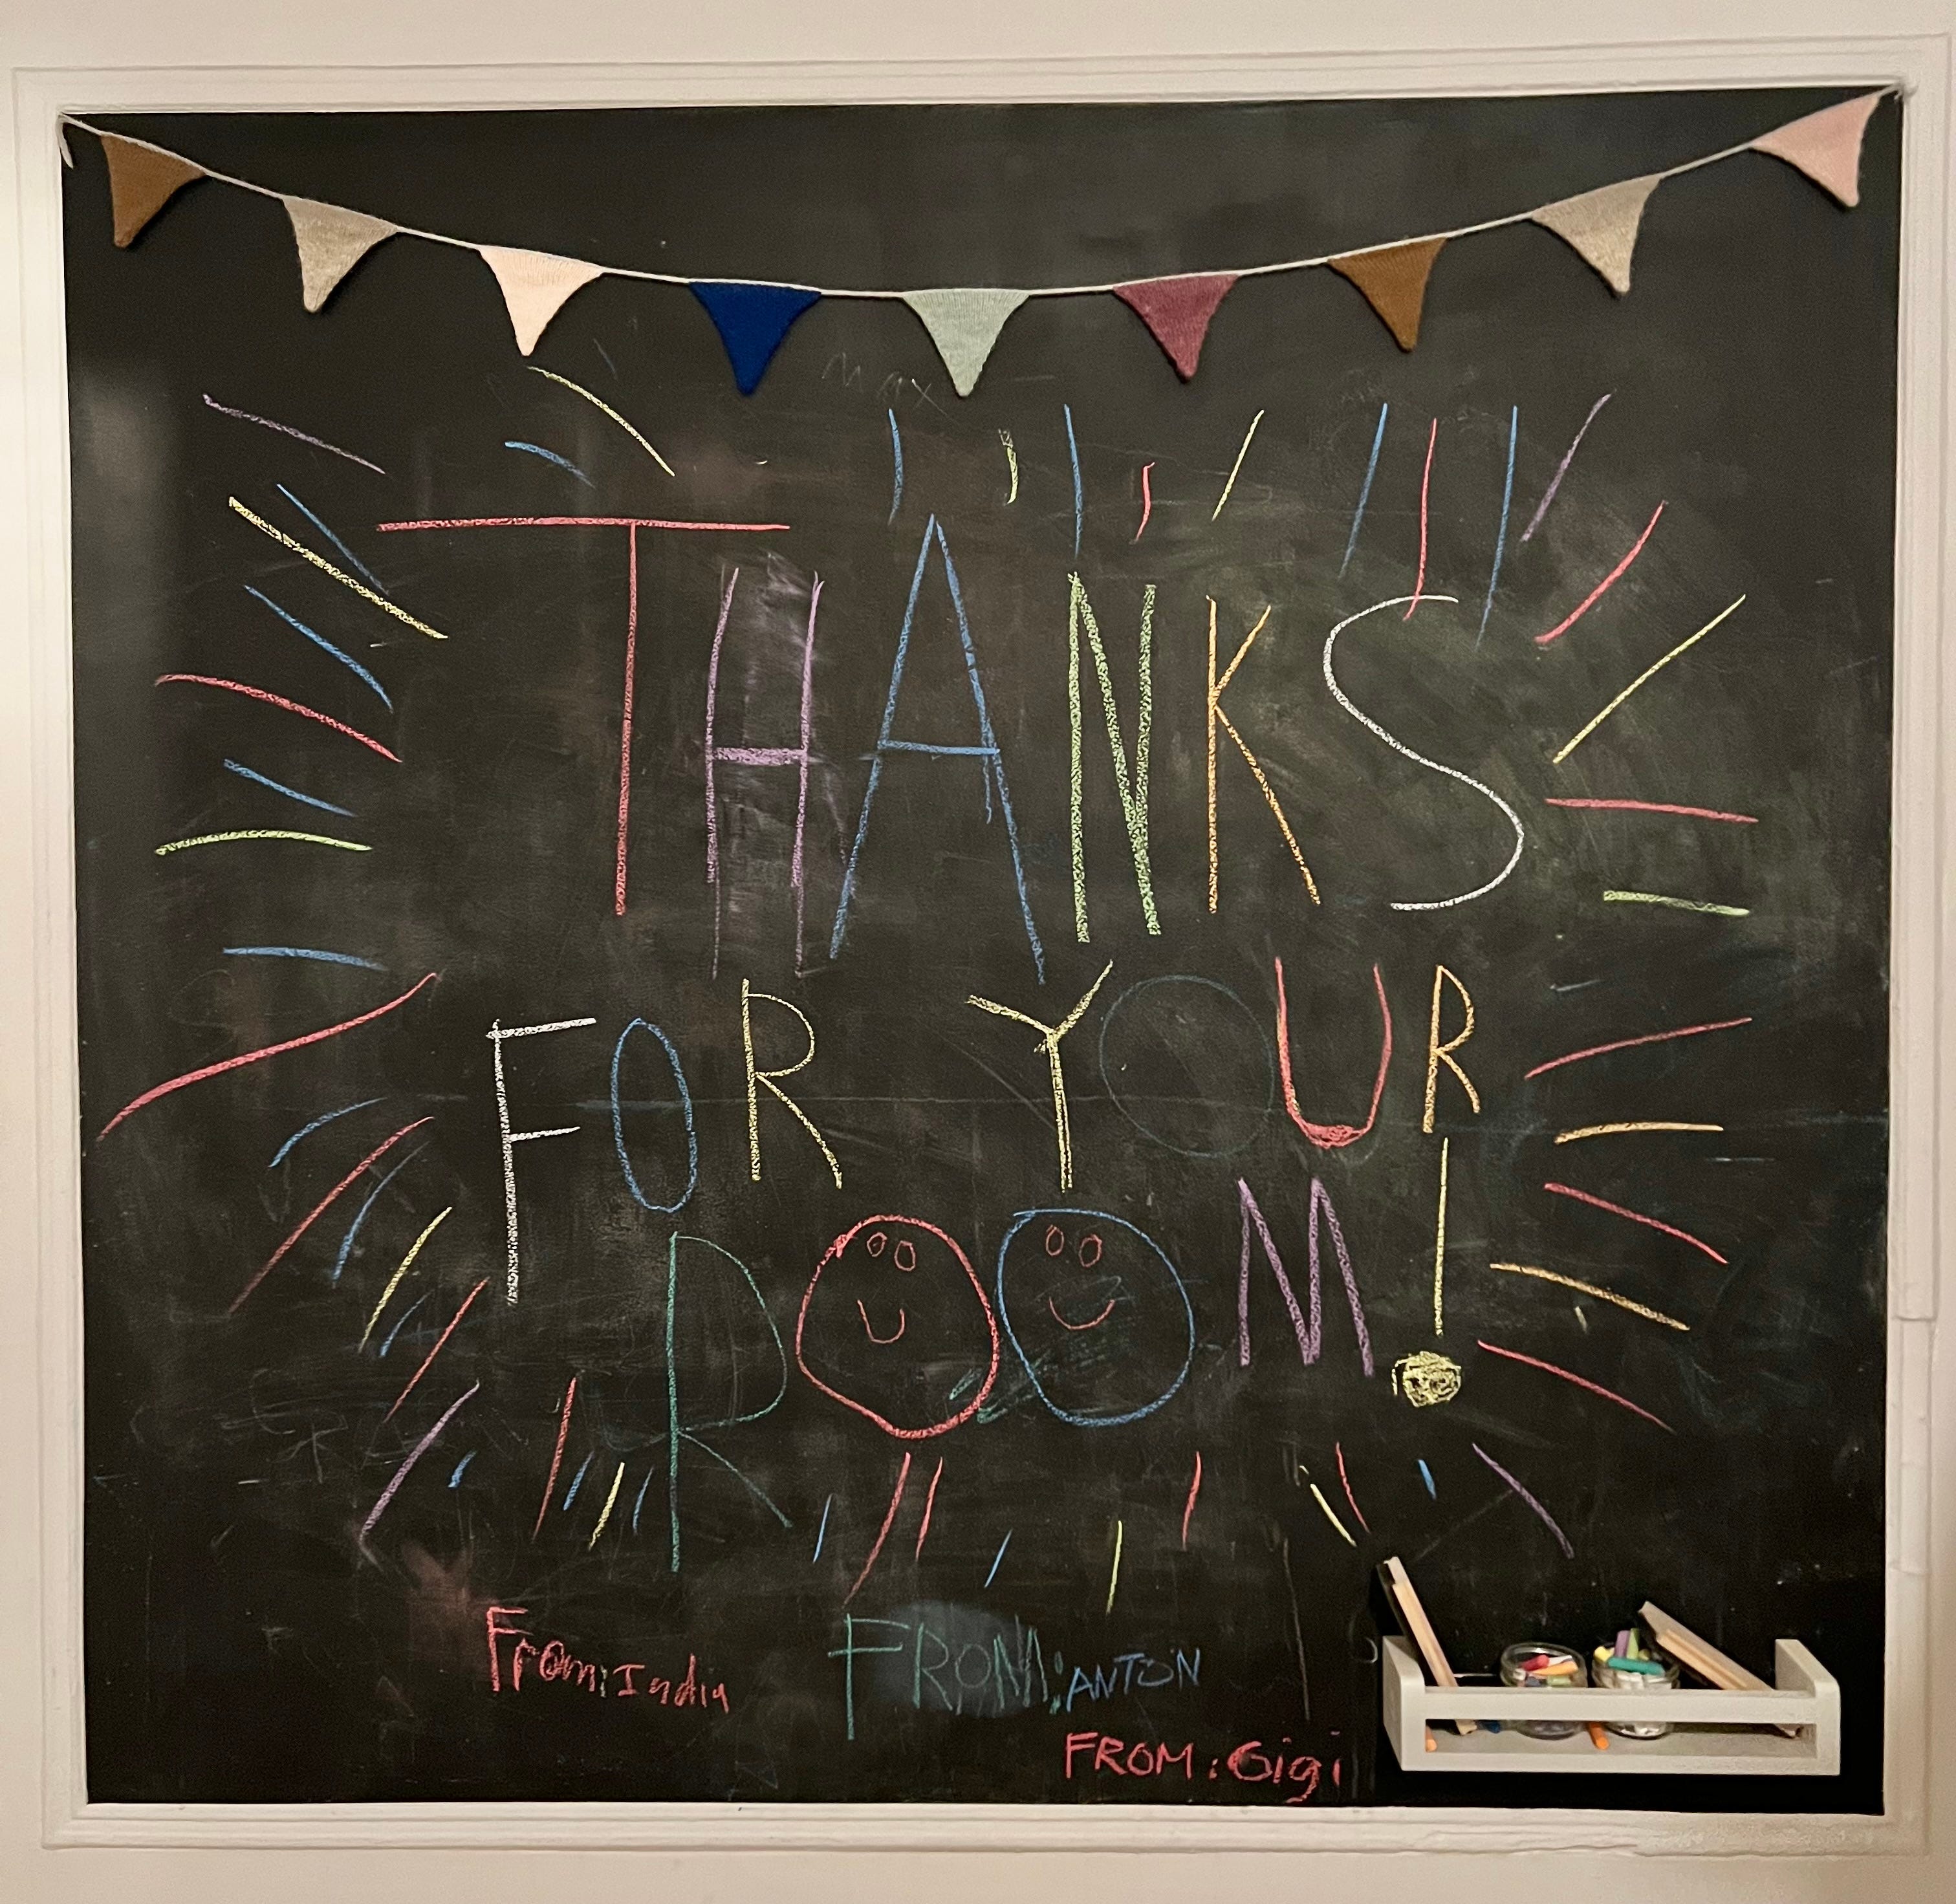 Max
THANKS
FOR YOUR
ROOM!
From: India
FROM: ANTON
FROM: Gigi